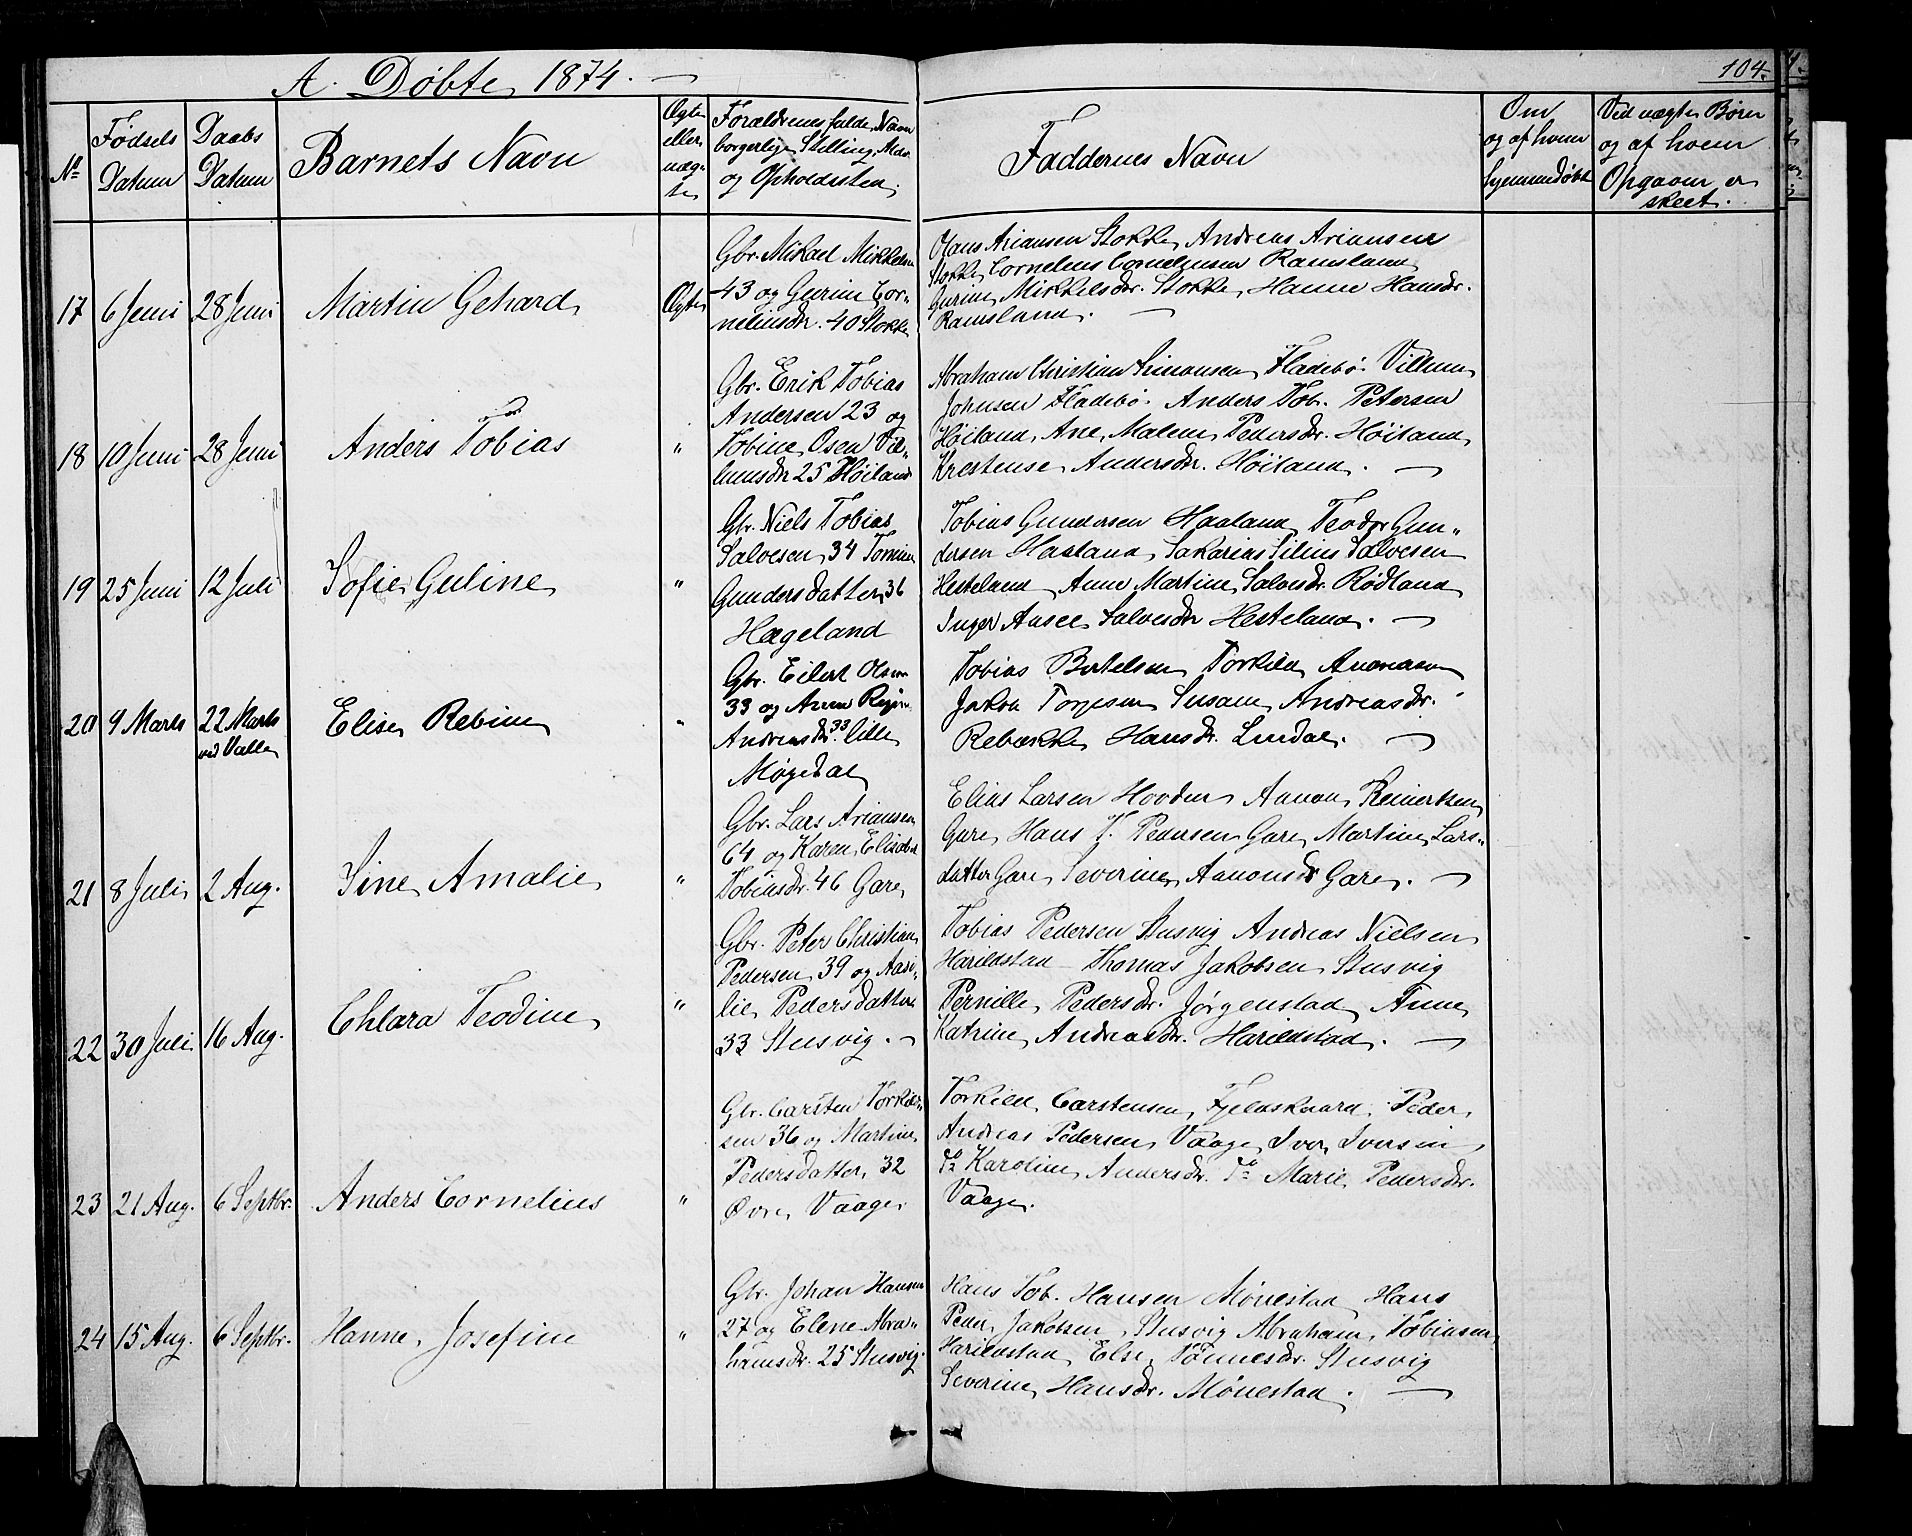 A. Døbte 1874.
104.
No
Fødsels Datum
Daabs Datum
Barnets Navn
Ægte eller uægte
Forældrenes fulde Navn borgerlige Stilling, Alder og Opholdssted.
Faddernes Navn
Om og af hvem hjemmedøbt
Ved uægte Børn og af hvem Opgaven er skeet.
17 6 Juni 28 Juni Martin Gehard Ægte
Gbr. Mikael Mikkelsen
43 og Gurine Cor-
neliusdr. 40 Stokke
Hans Ariansen Stokke, Andreas Ariansen
Stokke Cornelius Corneliusen Ramsland
Gurine Mikkelsdr. Stokke, Hanne Hansdr.
Ramsland.
18 10 Juni 28 Juni Anders Tobias "
Gbr. Erik Tobias
Andersen 23 og
Tobine Osen Vil-
lumsdr 25 Høiland
Abraham Christian Simonsen Fladebø. Villum
Johnsen Fladebø. Anders Tob. Petersen
Høiland, Ane Malene Pedersdr. Høiland
Krestense Andersdr. Høiland.
19 25 Juni 12 Juli Sofie Guline "
Gbr. Niels Tobias
Salvesen 34 Tomine
Gundersdatter 36
Hægeland
Tobias Gundersen Haaland, Teodor Gun-
dersen Haaland, Sakarias Silius Salvesen
Hesteland Anne Martine Salvesdr Rødland
Inger Aasee Salvesdr Hesteland.
20 9 Marts 22 Marts ved Valle Elise Rebine "
Gbr. Eilert Olsen
33 og Anne Regine
Andreasdr. 33. lille
Møgedal
Tobias Bertelsen Torkild Aanonsen
Jakob Torjesen Susane Andreasdr.
Rebække Hansdr. Lindal.
21 8 Juli 2 Aug. Sine Amalie "
Gbr. Lars Ariansen
64 og Karen Elisabet
Tobiasdr. 46 Gare
Elias Larsen Hovden Aanon Reinertsen
Gare Hans T. Pedersen Gare Martine Lars-
datter Gare Severine Aanonsdr Gare.
22 30 Juli 16 Aug. Chlara Teodine "
Gbr. Peter Christian
Pedersen 39 og Aasi-
lie Pedersdatter
33 Stusvig.
Tobias Pedersen Stusvig Andreas Nielsen
Harildstad Thomas Jakobsen Stusvig
Pernille Pedersdr. Jørgenstad Anne
Katrine Andreasdr. Harildstad.
23 21 Aug. 6 Septbr. Anders Cornelius "
Gbr. Carsten Torkild-
sen 36 og Martine
Pedersdatter 32
Øvre Vaage
Torkild Carstensen Fjeldskaard, Peder
Andreas Pedersen Vaage Iver Iversen
Do Karoline Andersdr. Do Marie Pedersdr.
Vaage.
24 15 Aug. 6 Septbr. Hanne Josefine "
Gbr. Johan Hansen
27 og Elene Abra-
hamsdr. 25 Stusvig.
Hans Tob. Hansen Mønestad Hans
Peder Jakobsen Stusvig Abraham Tobiasen
Harildstad Else Tønnesdr. Stusvig
Severine Hansdr. Mønestad.